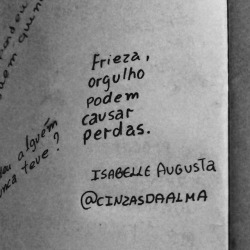 Frieza,
orgulho
podem
causar
perdas.
ISABELLE AUGUSTA
@CINZASDAALMA
alguém
teve?